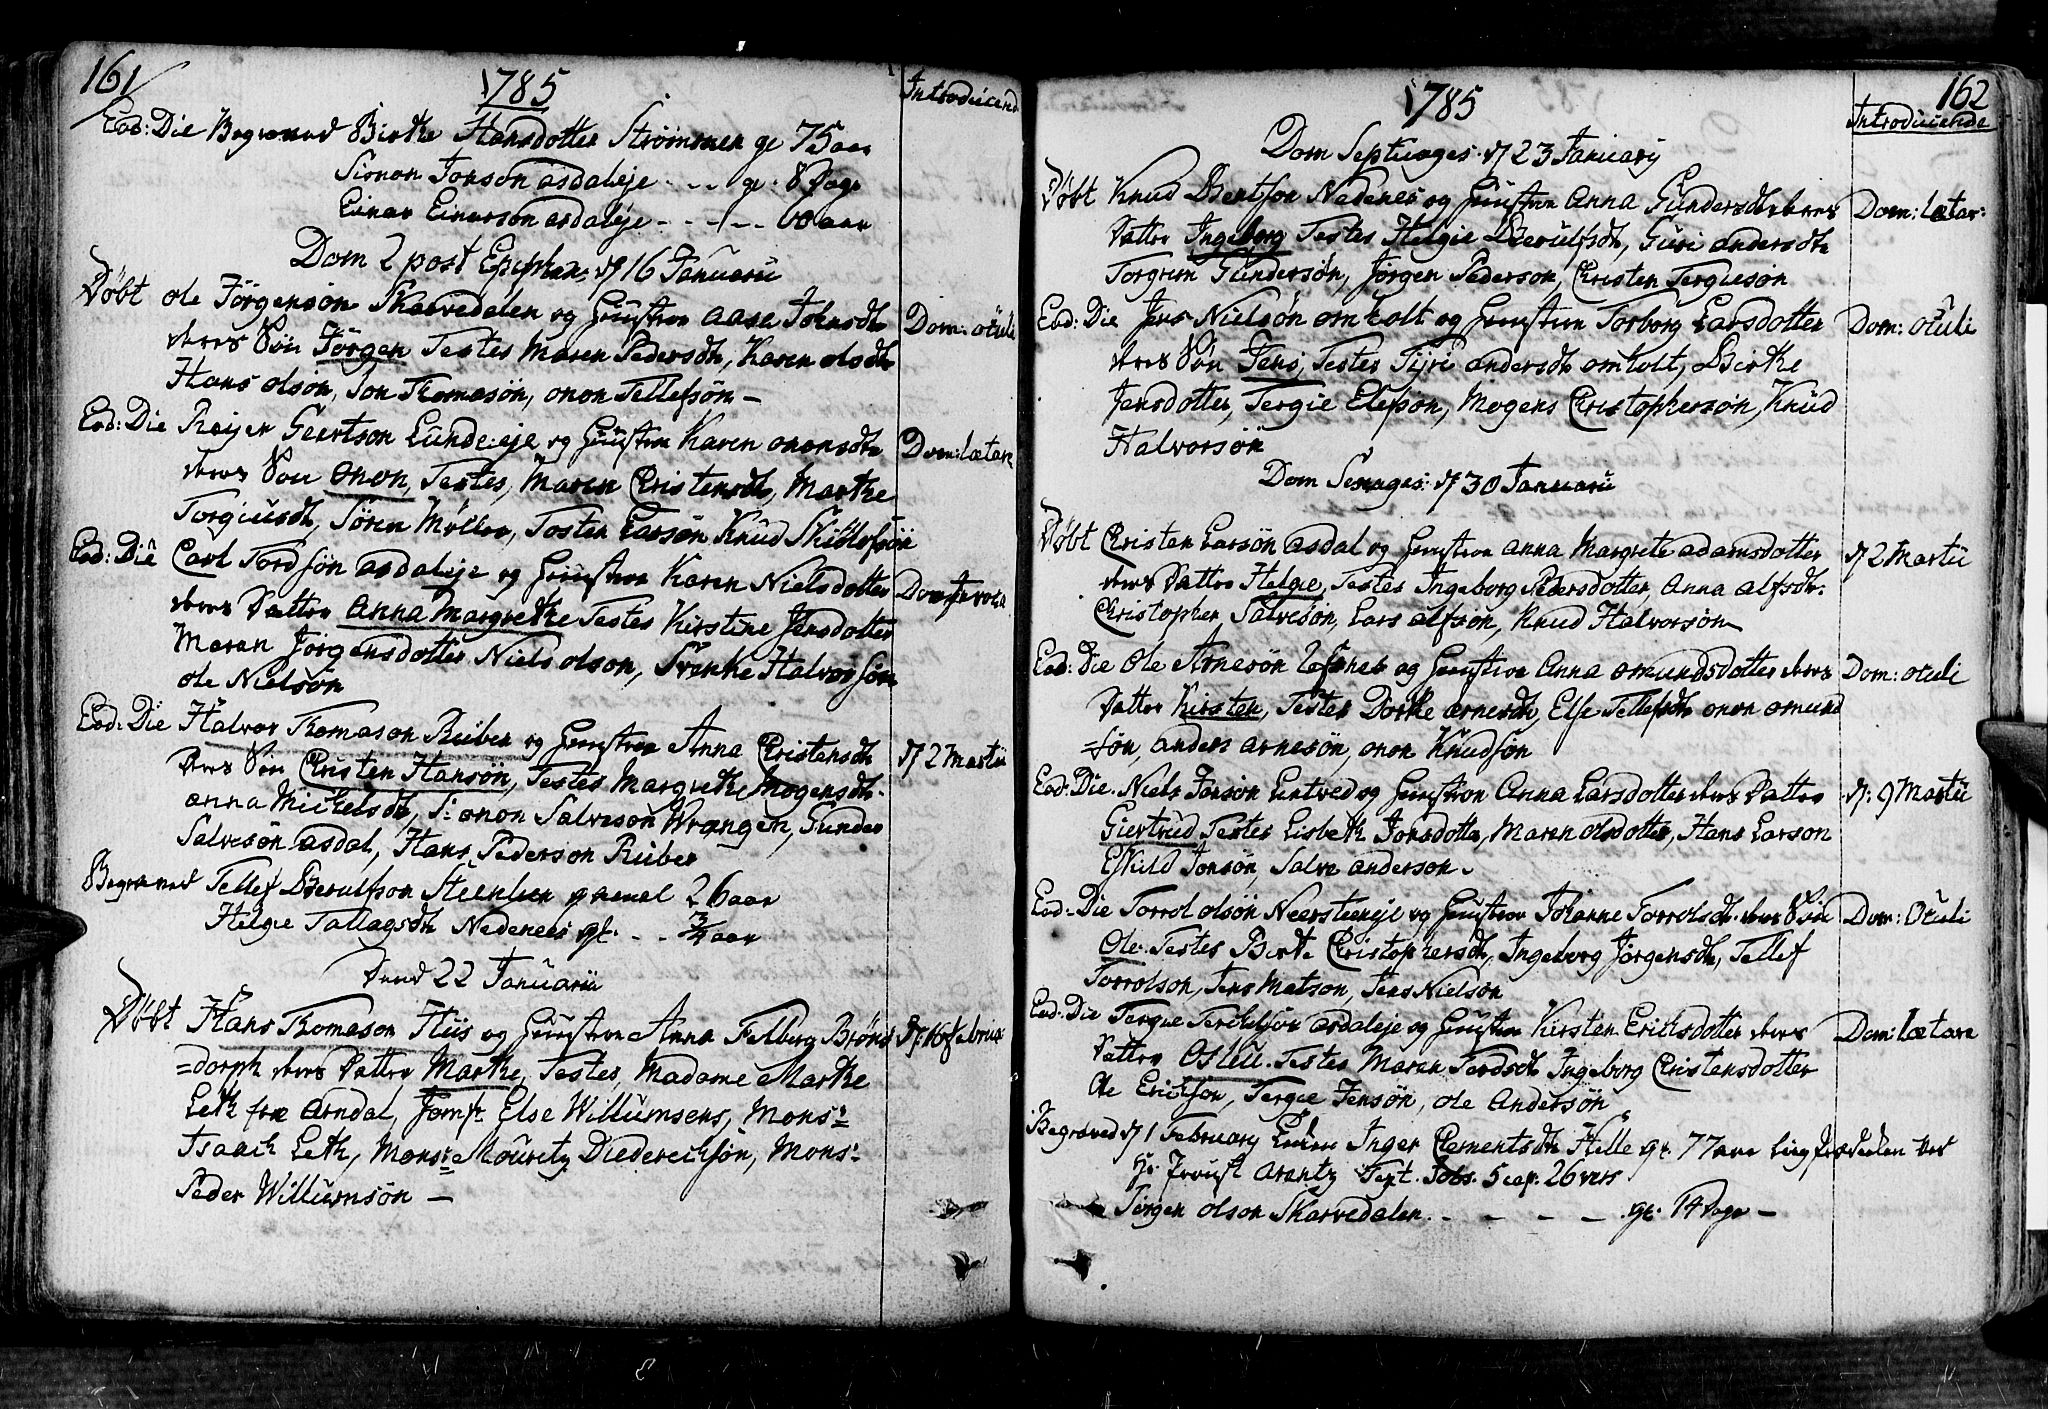 161
1785
Introducend
Eod: Die Begraved Birthe Hansdotter Strømmen gl 75 aar
Simon Jonsøn asdaleje - - - gl. 8 Dage
Einar Einersøn asdaleje - - - - 60 aar
Dom 2 post Epiphan: d 16 Januarii
Døbt ole Jörgensön Skarvedalen og Hustroe aase Johnsdtr Dom: oculi
deres Sön Jörgen Testes Maren Pedersdtr, Karen olsdtr
Hans olsön, Jon Thomasön, onon Tellefsön -
Eod: Die Reijer Geertson Lunde-eje og Hustroe Karen ononsdtr Dom: lætare
deres Sön onon, Testes, Maren Christensdtr, Marthe
Torgiusdtr, Sören Möller, Tosten Larsön Knud
Eod: Die Carl Tordsön asdaleje og Hustroe Karen Nielsdotter
deres Datter Anna Margrethe Testes Kirstine Jensdotter
Maren Jörgensdotter Niels olson, Svenke Halvorsön
ole Nielsön
Eod: Die Halvor Thomason Ruber og Hustroe Anna Christensdtr d 2 Martii
deres Sön Christen Hansön, Testes Margrethe Mogensdtr
anna Michelsdtr, S: onon Salvesön Wrangen, Gunder
Salvesön asdal, Hans Pederson Ruber
Begraved Tellef Berulfson Steenlien gammel 26 aar
Helge Tallagsdtr Nedenees gl. - - 3/4 aar
Dend 22 Januarii
Døbt Hans Thomason Huis og Hustroe Anna Felberg Brøns d: 16 februar
=dorph deres Datter Marthe, Testes, Madame Marthe
Leth fra Arndal, Jomfr. Else Willumsens, Mons:
Isaach Leth, Mons: Mouritz Diederichsön, Mons:
Peder Willumsön -
162
1785
Introducende
Dom Septuages: d 23 Januarij
Døbt Knud Bentson Nedenes og Hustroe Anna Gundersdtr deres Dom: Lætar:
Datter Ingeborg Testes Helgie Berulfsdtr, Guri andersdtr
Torgrim Gundersön, Jörgen Pederson, Christen Tergiesön
Eod: Die Jens Nielsön omholt og Hustroe Torborg Larsdotter Dom: oculi
deres Sön Jens, Testes Sijri andersdtr omholt, Birthe
Jensdotter, Tergie Elefson, Mogens Christophersön, Knud
Halvorsön
Dom Sexages: d 30 Januarii
Døbt Christen Larsön asdal og Hustroe anna Margrete adamsdotter d 2 Martii
deres Datter Helgie, Testes Ingeborg Pedersdotter, Anna alfsdtr.
Christopher Salvesön, Lars alfsön, Knud Halvorsön
Eod: Die Ole Arnesön og Hustroe Anna omundsdotter deres Dom: oculi
Datter Kirsten, Testes Dorthe arnesdtr, Else Tellefsdtr onon omund
=sön, anders arnesön, onon Knudsön
Eod: Die. Niels Jonsön Lintved og Hustroe Anna Larsdotter deres Datter d: 9 Martii
Giertrud Testes Lisbeth Jonsdotter, Maren olsdotter, Hans Larson
Eskild Jonsön, Salve anderson.
Eod: Die Torrol olsön Neersteeneje og Hustroe Johanne Torrolsdtr deres Sön Dom: Oculi
Ole. Testes Birte Christophersdtr, Ingeborg Jörgensdtr, Tellef
Torrolson, Jens Matson, Jens Nielsön
Eod: Die Tergie Terchelsön asdaleje og Hustroe Kirsten Erichsdotter deres Dom: Lætare
Datter Osteu. Testes Maren Tordsdtr Ingeborg Christensdotter
ole Erichson, Tergie Jensön, ole Andersön
Begraved d 1 February Enken Inger Clementsdtr Helle gl. 77 aar Liigprædiken ved
Hr. Provst Arentz Text. Jobs. 5 cap. 26 vers
Jörgen olson Skarvedalen. - - - - gl. 14 Dage -